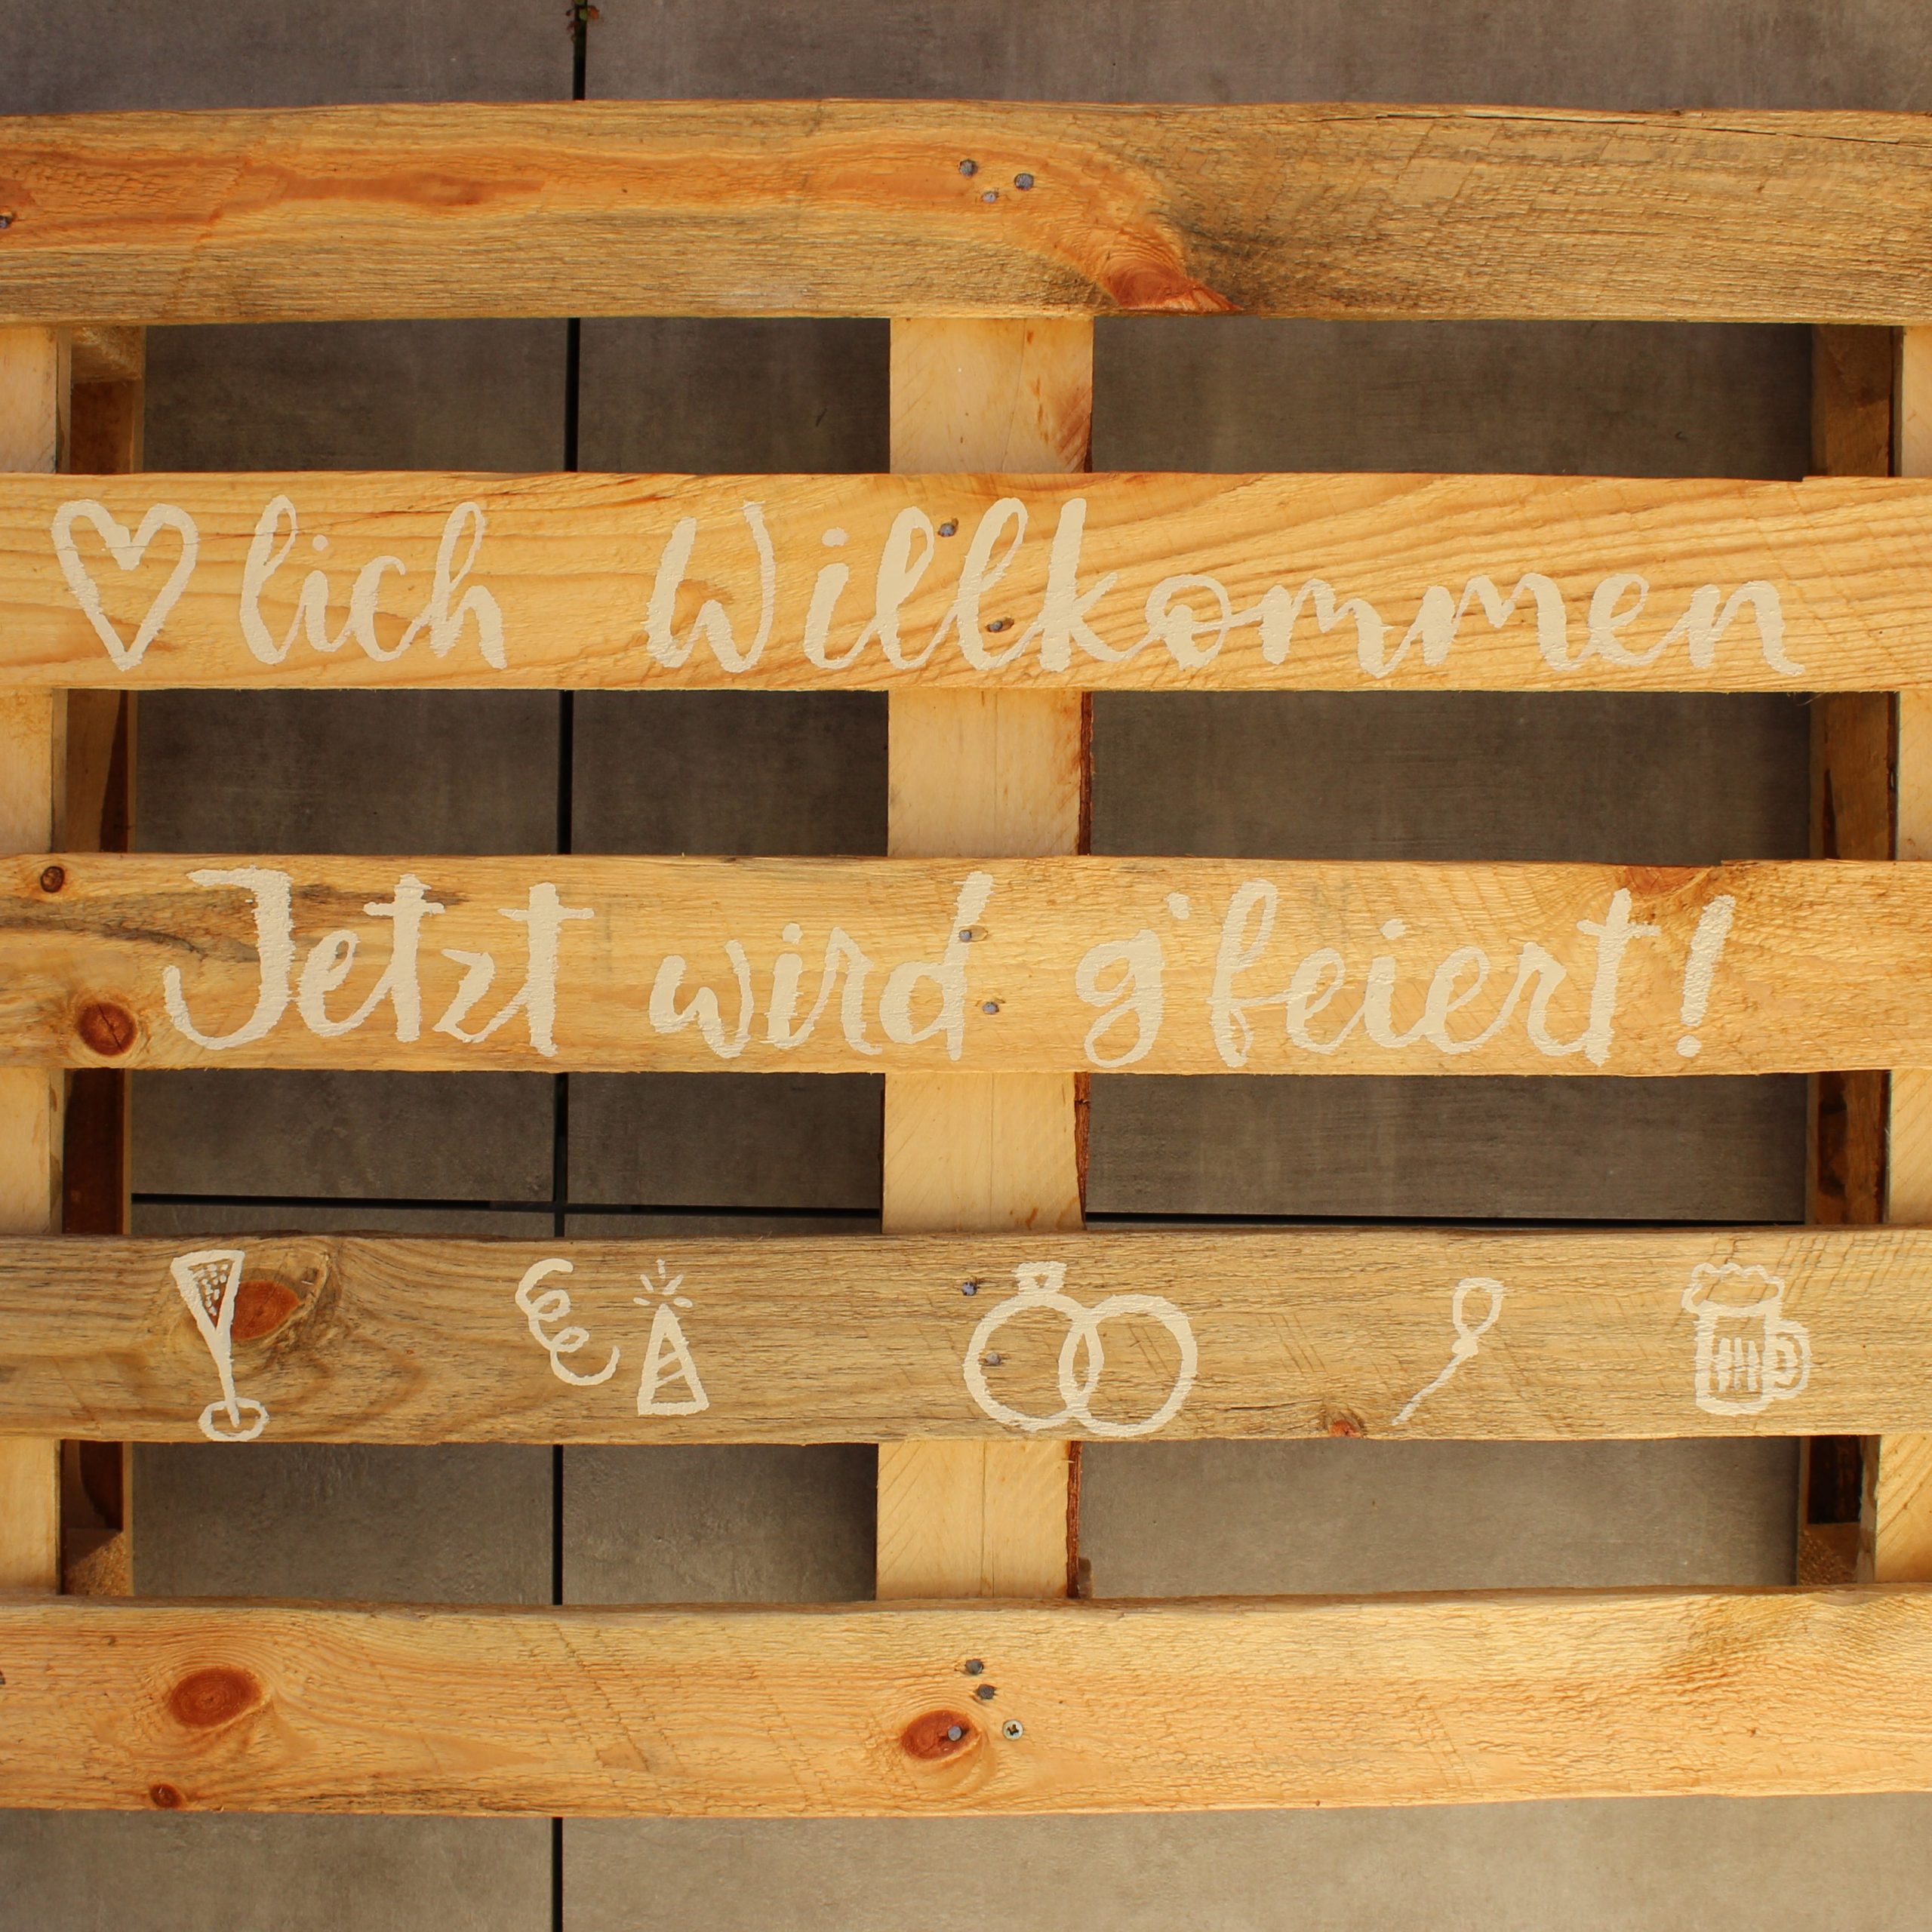 ♡lich Willkommen
Jetzt wird g'feiert!